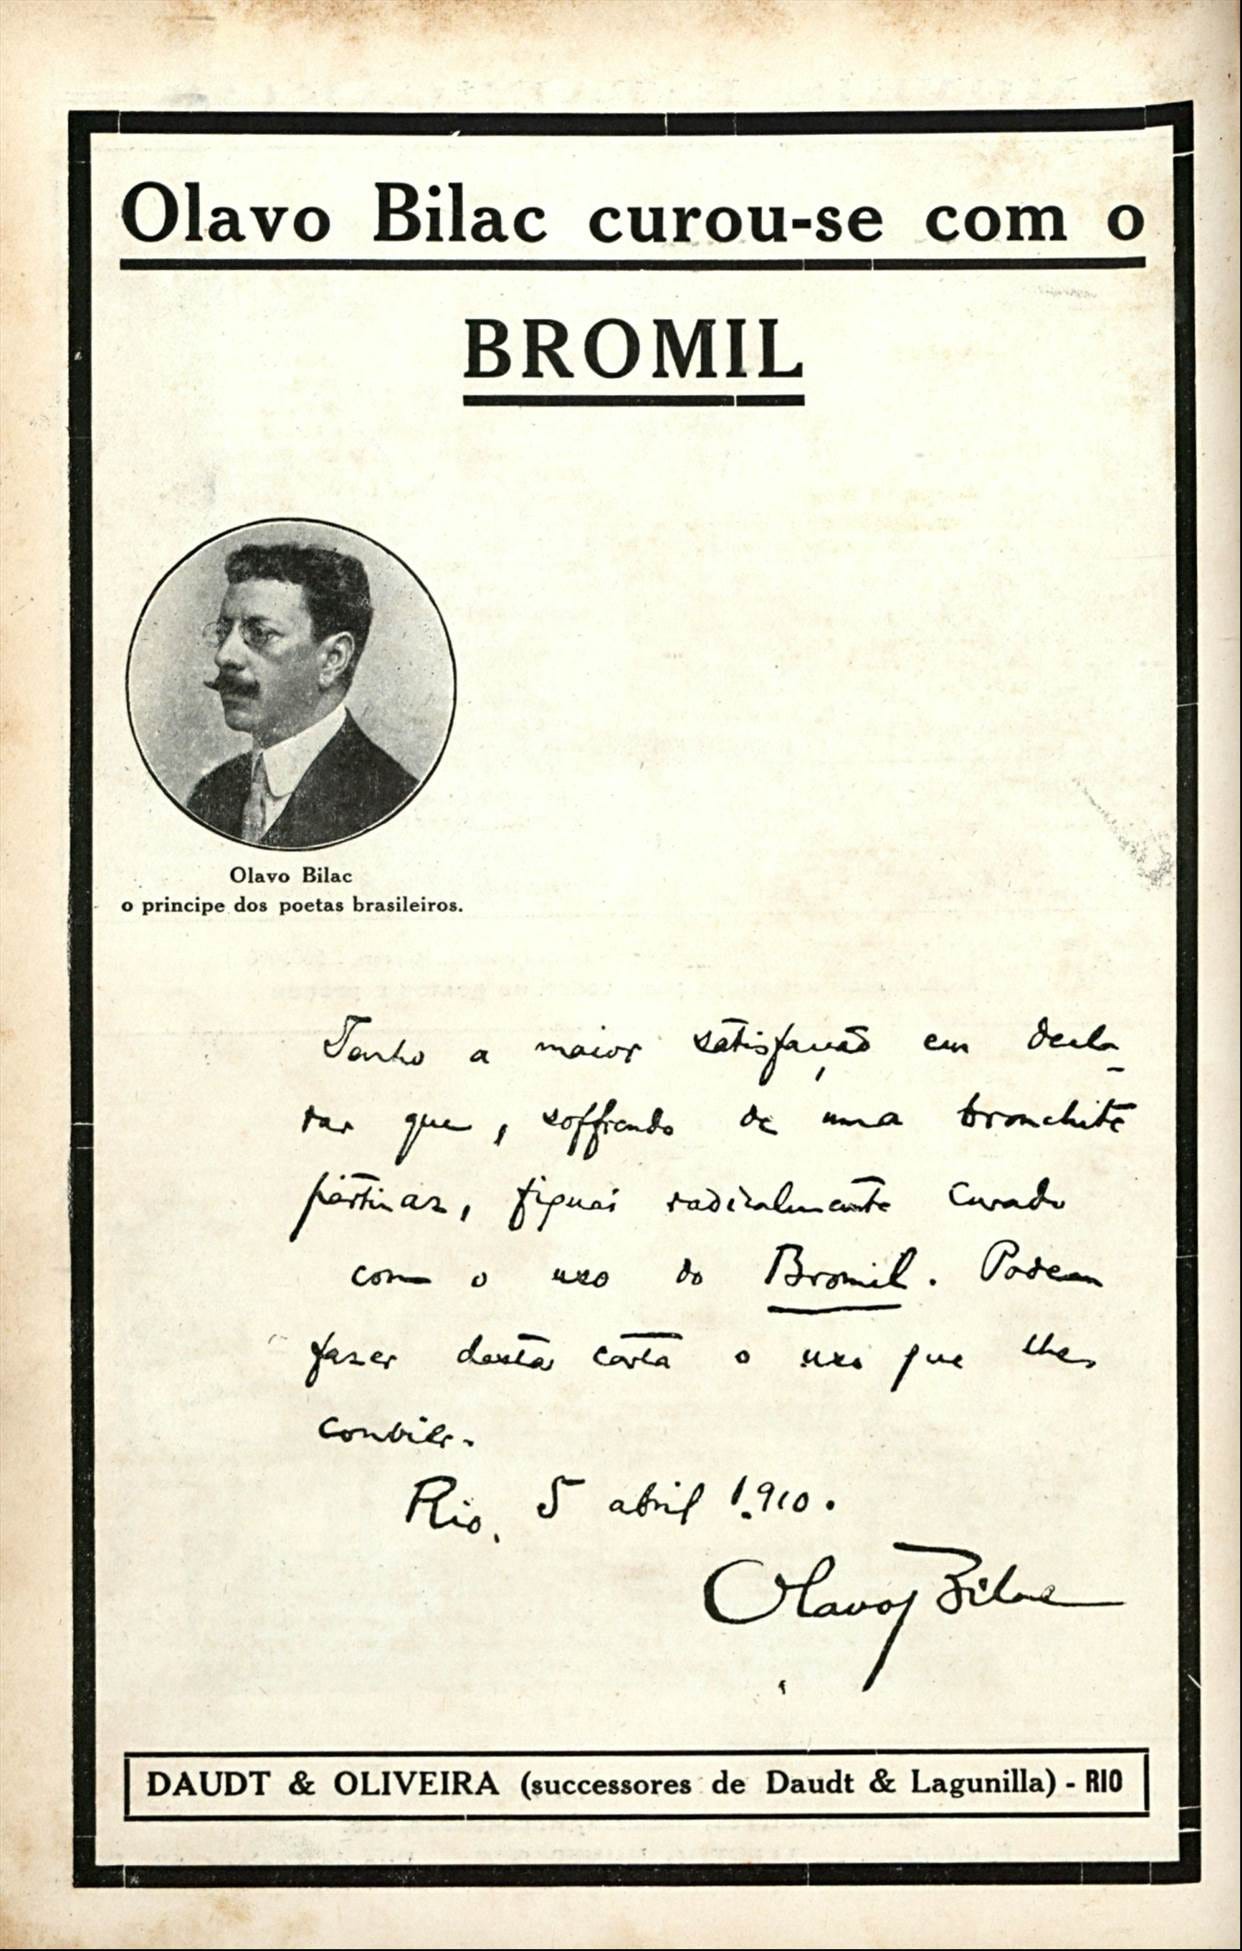 Olavo Bilac curou-se com o
BROMIL
Olavo Bilac
o principe dos poetas brasileiros.
Tenho a maior satisfação em decla-
rar que, soffrendo de uma bronchite
pertinaz, fiquei radicalmente curado
com o uso do Bromil. Podem
fazer desta carta o uso que lhes
convier.
Rio, 5 abril 1.910.
Olavo Bilac
DAUDT & OLIVEIRA (successores de Daudt & Lagunilla) - RIO